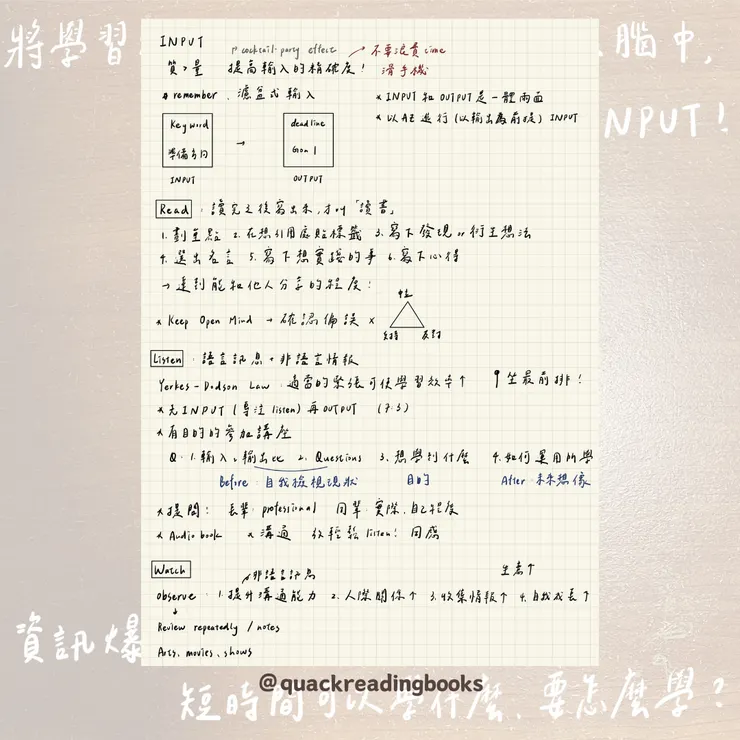 將學習
腦中,
NPUT!
INPUT
cocktail-party effect → 不要浪費time
質>量 提高輸入的精確度! 滑手機
# remember. 濾盆式輸入
* INPUT 和 OUTPUT 是一體兩面
* 以AZ進行(以輸出為前提) INPUT
Keyword
準備多問
→
deadline
Goal
INPUT
OUTPUT
Read : 讀完之後寫出來,才叫「讀書」
1. 劃重點 2. 在想引用處貼標籤 3. 寫下發現 or 衍生想法
4. 選出名言 5. 寫下想實踐的事 6. 寫下心得
→ 達到能和他人分享的程度!
中立
* Keep Open Mind → 確認偏誤 ×
支持 反對
Listen : 語言訊息 + 非語言情報
Yerkes-Dodson Law : 適當的緊張可使學習效率↑ 坐最前排!
* 先INPUT(專注 listen) 再OUTPUT (7:3)
* 有目的的參加講座
Q: 1. 輸入、輸出比 2. Questions 3. 想學到什麼 4. 如何運用所學
Before 自我檢視現狀 目的 After 未來想像
* 提問: 長輩: professional 同輩: 實際、自己程度
* Audio book * 溝通 放輕鬆 listen! 同感
Watch
非語言訊息
生產↑
observe : 1. 提升溝通能力 2. 人際關係↑ 3. 收集情報↑ 4. 自我成長↑
Review repeatedly / notes
Arts, movies, shows
資訊爆
@quackreadingbooks
短時間可以學什麼、要怎麼學?